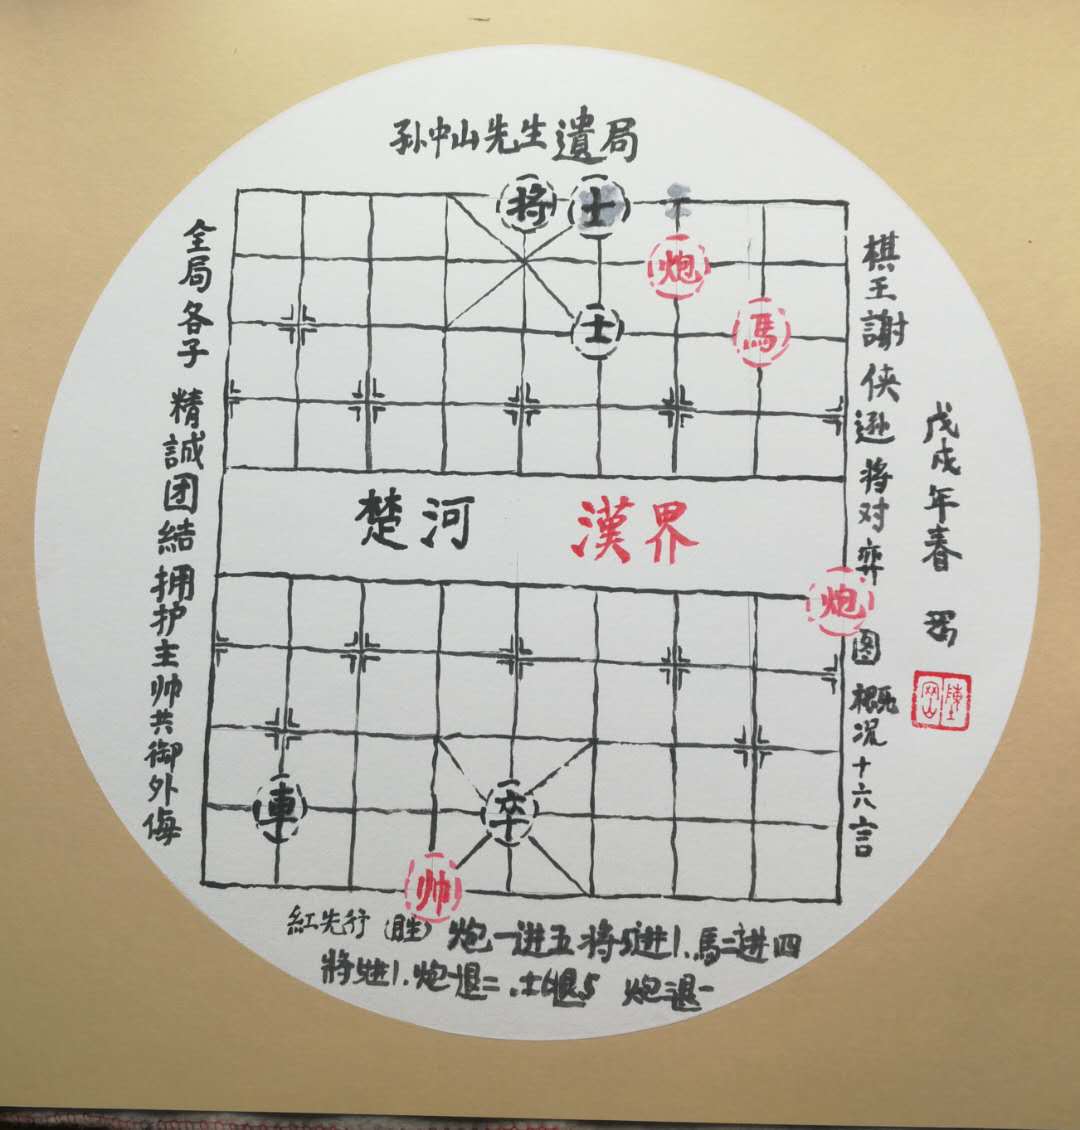 孙中山先生遺局
棋王謝侠遜将对弈图概况十六言
戊戌年春
全局各子精誠团結拥护主帅共御外侮
将
士
炮
馬
士
楚河
漢界
炮
車
卒
帅
紅先行(胜)炮一进五将5进1.馬二进四
將5进1.炮一退二.士6退5 炮一退一